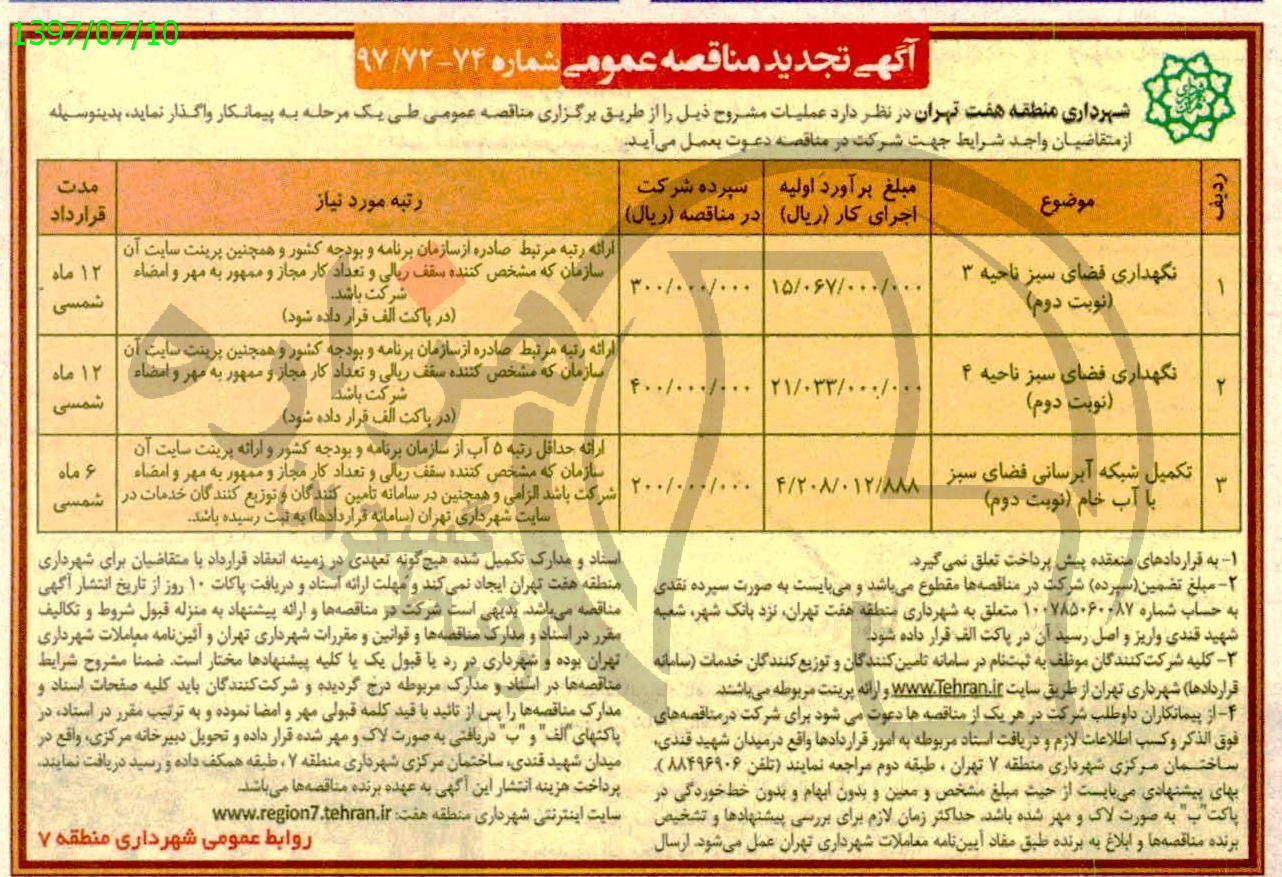 1397/07/10
آگهی تجدید مناقصه عمومی شماره ۷۴-۹۷/۷۲
شهرداری منطقه هفت تهران در نظر دارد عملیات مشروح ذیل را از طریق برگزاری مناقصه عمومی طی یک مرحله به پیمانکار واگذار نماید، بدینوسیله
از متقاضیان واجد شرایط جهت شرکت در مناقصه دعوت بعمل می‌آید.
ردیف موضوع مبلغ برآورد اولیه اجرای کار (ریال) سپرده شرکت در مناقصه (ریال) رتبه مورد نیاز مدت قرارداد
۱ نگهداری فضای سبز ناحیه ۳ (نوبت دوم) ۱۵/۰۶۷/۰۰۰/۰۰۰ ۳۰۰/۰۰۰/۰۰۰
ارائه رتبه مرتبط صادره ازسازمان برنامه و بودجه کشور و همچنین پرینت سایت آن
سازمان که مشخص کننده سقف ریالی و تعداد کار مجاز و ممهور به مهر و امضاء
شرکت باشد.
(در پاکت الف قرار داده شود)
۱۲ ماه شمسی
۲ نگهداری فضای سبز ناحیه ۴ (نوبت دوم) ۲۱/۰۳۳/۰۰۰/۰۰۰ ۴۰۰/۰۰۰/۰۰۰
ارائه رتبه مرتبط صادره ازسازمان برنامه و بودجه کشور و همچنین پرینت سایت آن
سازمان که مشخص کننده سقف ریالی و تعداد کار مجاز و ممهور به مهر و امضاء
شرکت باشد.
(در پاکت الف قرار داده شود)
۱۲ ماه شمسی
۳ تکمیل شبکه آبرسانی فضای سبز با آب خام (نوبت دوم) ۴/۲۰۸/۰۱۲/۸۸۸ ۲۰۰/۰۰۰/۰۰۰
ارائه حداقل رتبه ۵ آب از سازمان برنامه و بودجه کشور و ارائه پرینت سایت آن
سازمان که مشخص کننده سقف ریالی و تعداد کار مجاز و ممهور به مهر و امضاء
شرکت باشد الزامی و همچنین در سامانه تامین کنندگان و توزیع کنندگان خدمات در
سایت شهرداری تهران (سامانه قراردادها) به ثبت رسیده باشد.
۶ ماه شمسی
۱- به قراردادهای منعقده پیش پرداخت تعلق نمی‌گیرد.
۲- مبلغ تضمین(سپرده) شرکت در مناقصه‌ها مقطوع می‌باشد و می‌بایست به صورت سپرده نقدی
به حساب شماره ۱۰۰۷۸۵۰۶۰۰۸۷ متعلق به شهرداری منطقه هفت تهران، نزد بانک شهر، شعبه
شهید قندی واریز و اصل رسید آن در پاکت الف قرار داده شود.
۳- کلیه شرکت‌کنندگان موظف به ثبت‌نام در سامانه تامین‌کنندگان و توزیع‌کنندگان خدمات (سامانه
قراردادها) شهرداری تهران از طریق سایت www.Tehran.ir و ارائه پرینت مربوطه می‌باشند.
۴- از پیمانکاران داوطلب شرکت در هر یک از مناقصه ها دعوت می شود برای شرکت درمناقصه‌های
فوق الذکر و کسب اطلاعات لازم و دریافت اسناد مربوطه به امور قراردادها واقع درمیدان شهید قندی،
ساختمان مرکزی شهرداری منطقه ۷ تهران ، طبقه دوم مراجعه نمایند (تلفن ۸۸۴۹۶۹۰۶ ).
بهای پیشنهادی می‌بایست از حیث مبلغ مشخص و معین و بدون ابهام و بدون خط‌خوردگی در
پاکت"ب" به صورت لاک و مهر شده باشد. حداکثر زمان لازم برای بررسی پیشنهادها و تشخیص
برنده مناقصه‌ها و ابلاغ به برنده طبق مفاد آیین‌نامه معاملات شهرداری تهران عمل می‌شود. ارسال
اسناد و مدارک تکمیل شده هیچ‌گونه تعهدی در زمینه انعقاد قرارداد با متقاضیان برای شهرداری
منطقه هفت تهران ایجاد نمی‌کند و مهلت ارائه اسناد و دریافت پاکات ۱۰ روز از تاریخ انتشار آگهی
مناقصه می‌باشد. بدیهی است شرکت در مناقصه‌ها و ارائه پیشنهاد به منزله قبول شروط و تکالیف
مقرر در اسناد و مدارک مناقصه‌ها و قوانین و مقررات شهرداری تهران و آئین‌نامه معاملات شهرداری
تهران بوده و شهرداری در رد یا قبول یک یا کلیه پیشنهادها مختار است. ضمنا مشروح شرایط
مناقصه‌ها در اسناد و مدارک مربوطه درج گردیده و شرکت‌کنندگان باید کلیه صفحات اسناد و
مدارک مناقصه‌ها را پس از تائید با قید کلمه قبولی مهر و امضا نموده و به ترتیب مقرر در اسناد، در
پاکتهای"الف" و "ب" دریافتی به صورت لاک و مهر شده قرار داده و تحویل دبیرخانه مرکزی، واقع در
میدان شهید قندی، ساختمان مرکزی شهرداری منطقه ۷ ، طبقه همکف داده و رسید دریافت نمایند.
پرداخت هزینه انتشار این آگهی به عهده برنده مناقصه‌ها می‌باشد.
سایت اینترنتی شهرداری منطقه هفت: www.region7.tehran.ir
روابط عمومی شهرداری منطقه ۷